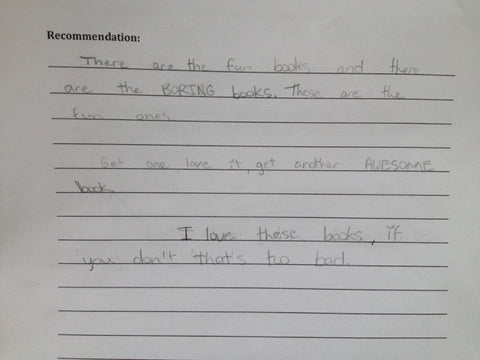 Recommendation:
There are the fun books and there
are the BORING books. These are the
fun ones.
Get one, love it, get another AWESOME
book.
I love those books, if
you don't that's too bad.